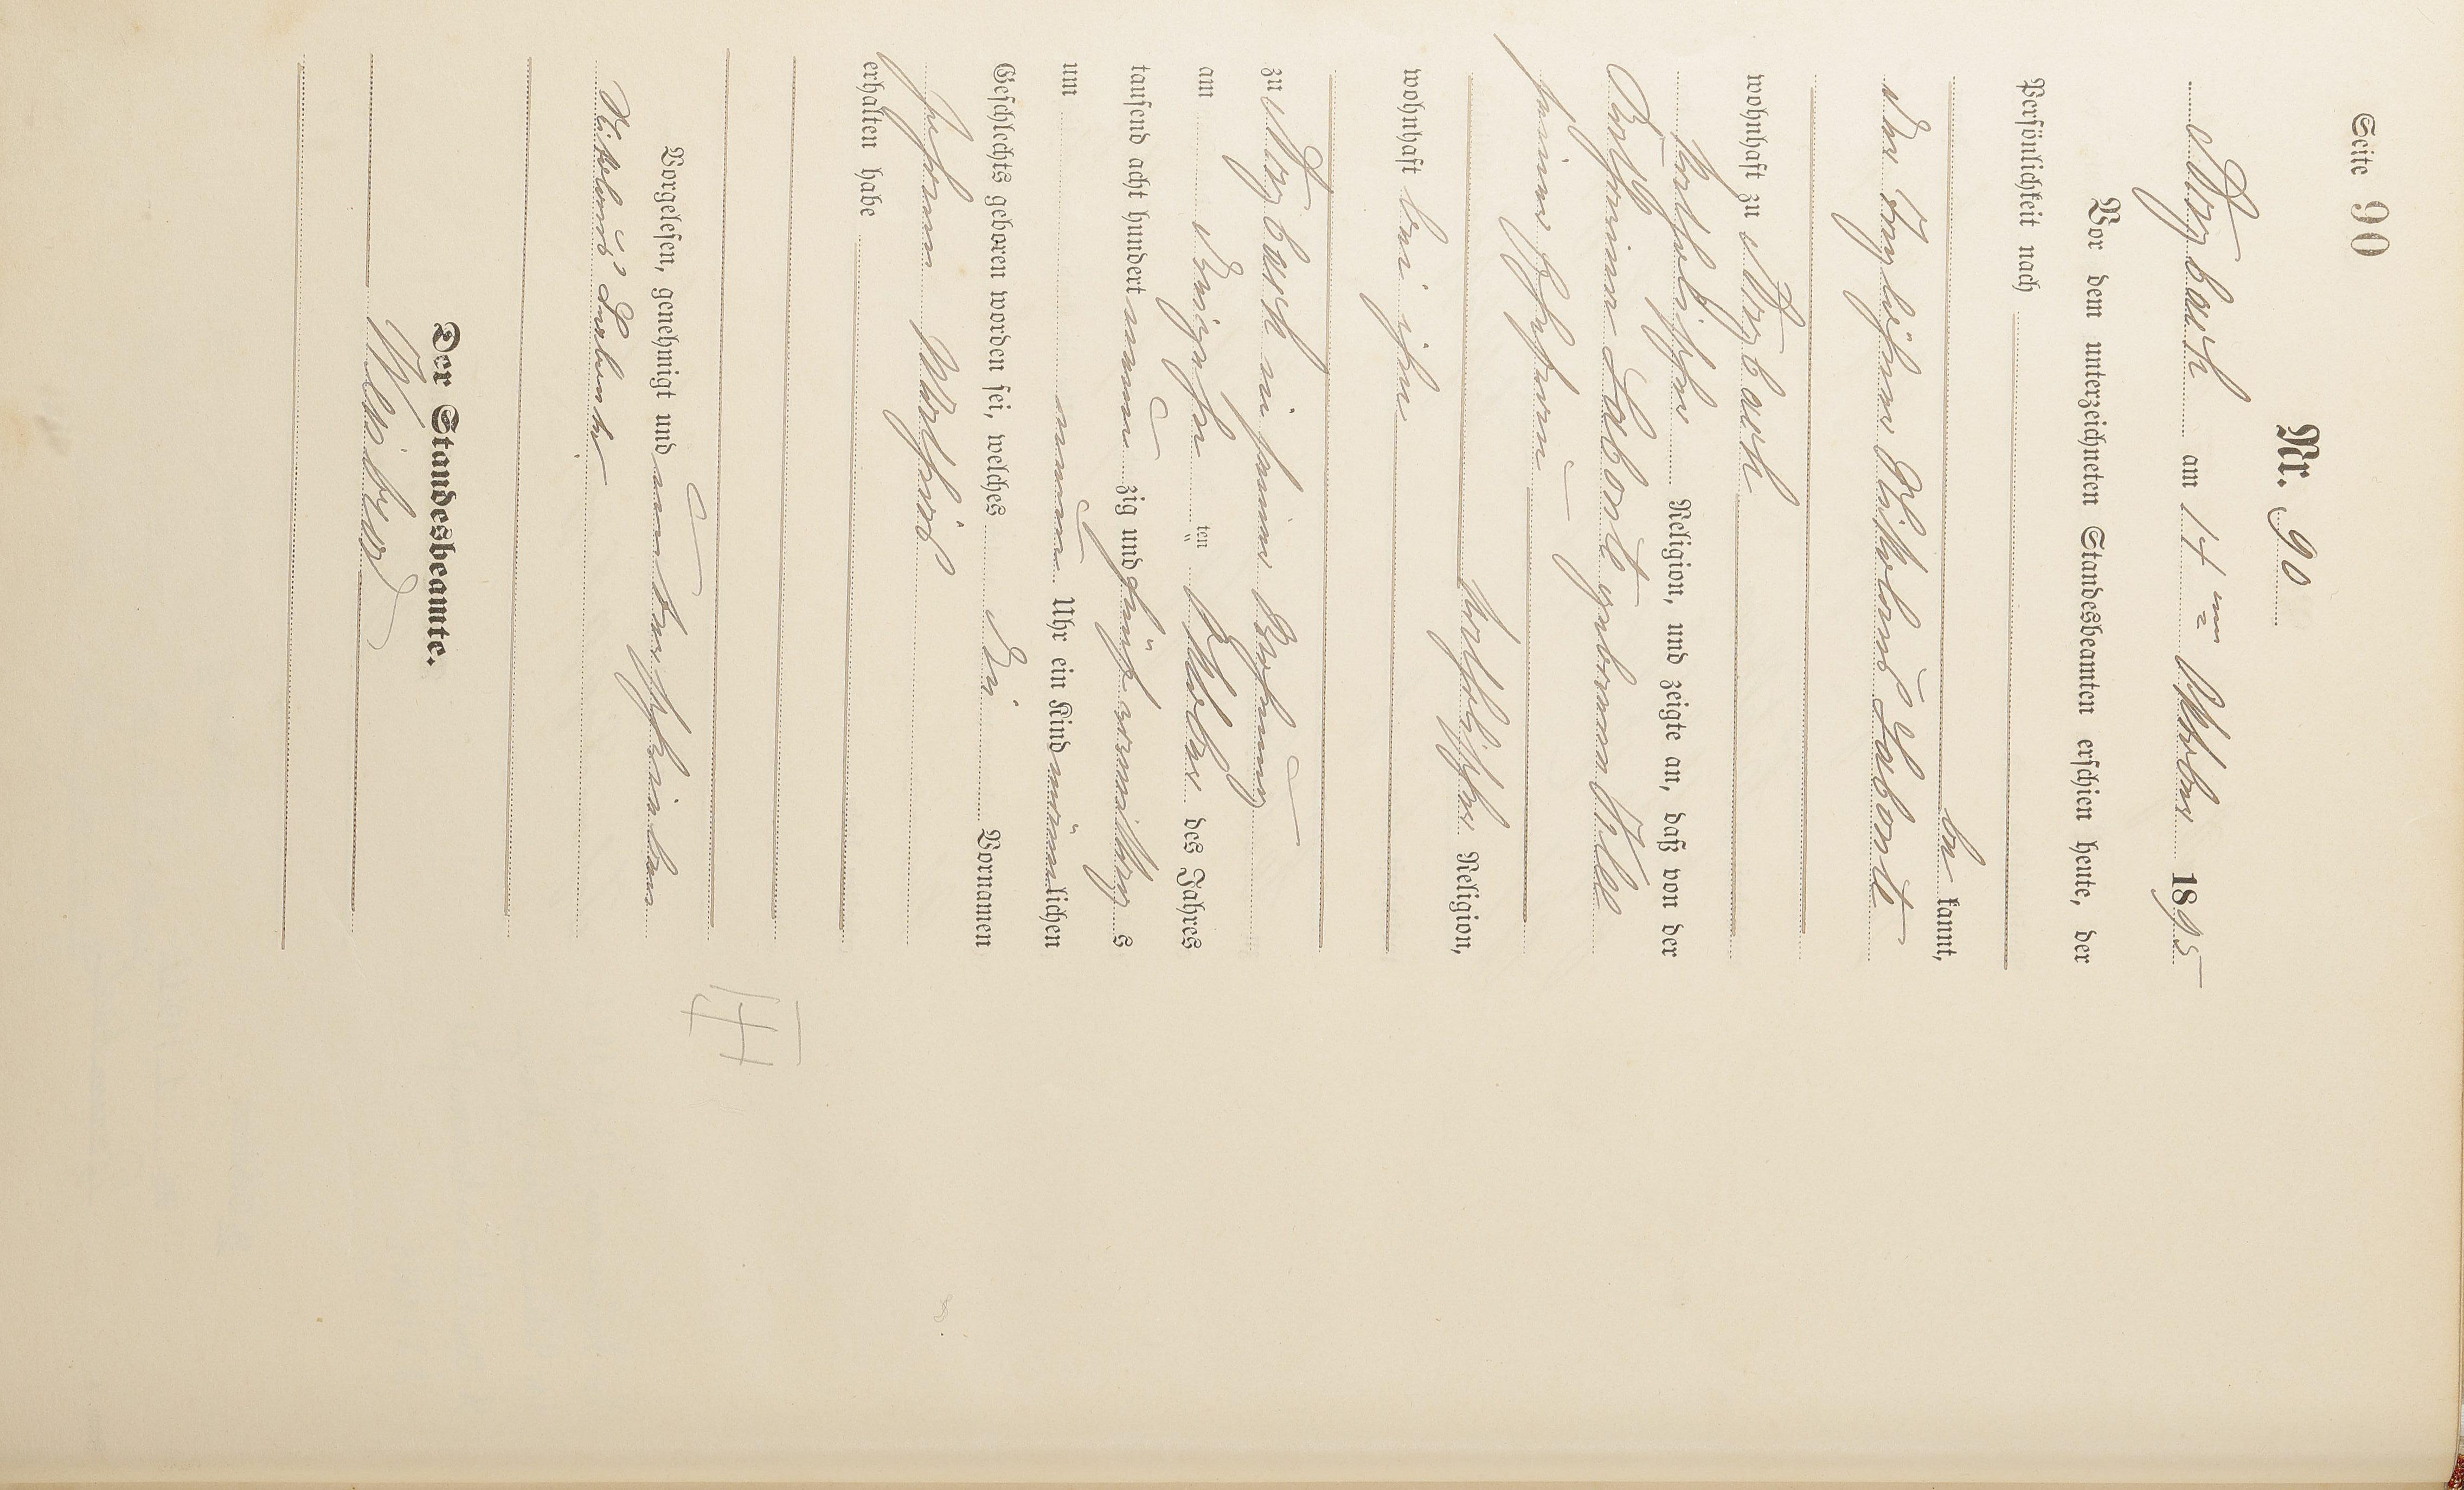 Seite 90
Nr. 90
Marbach am 14 ten Oktober 1895
Vor dem unterzeichneten Standesbeamten erschien heute, der
Persönlichkeit nach
be kannt,
der Taglöhner Nikolaus
wohnhaft zu Marbach
katholischer Religion, und zeigte an, daß von der
Katharina geborenen
seiner Ehefrau
katholischer Religion,
wohnhaft bei ihm
zu Marbach in seiner Wohnung
am dreizehn ten Oktober des Jahres
tausend acht hundert neun zig und fünf vormittag s
um neun Uhr ein Kind männ lichen
Geschlechts geboren worden sei, welches die Vornamen
Johann
erhalten habe
Vorgelesen, genehmigt und unterschrieben
Nikolaus
Der Standesbeamte.